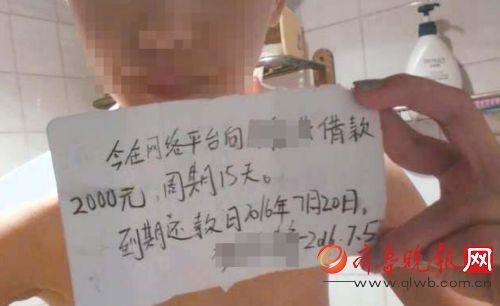 今在网络平台向 借款
2000元，周期15天。
到期还款日2016年7月20日。
-2016.7.5
齐鲁晚报网
www.qlwb.com.cn